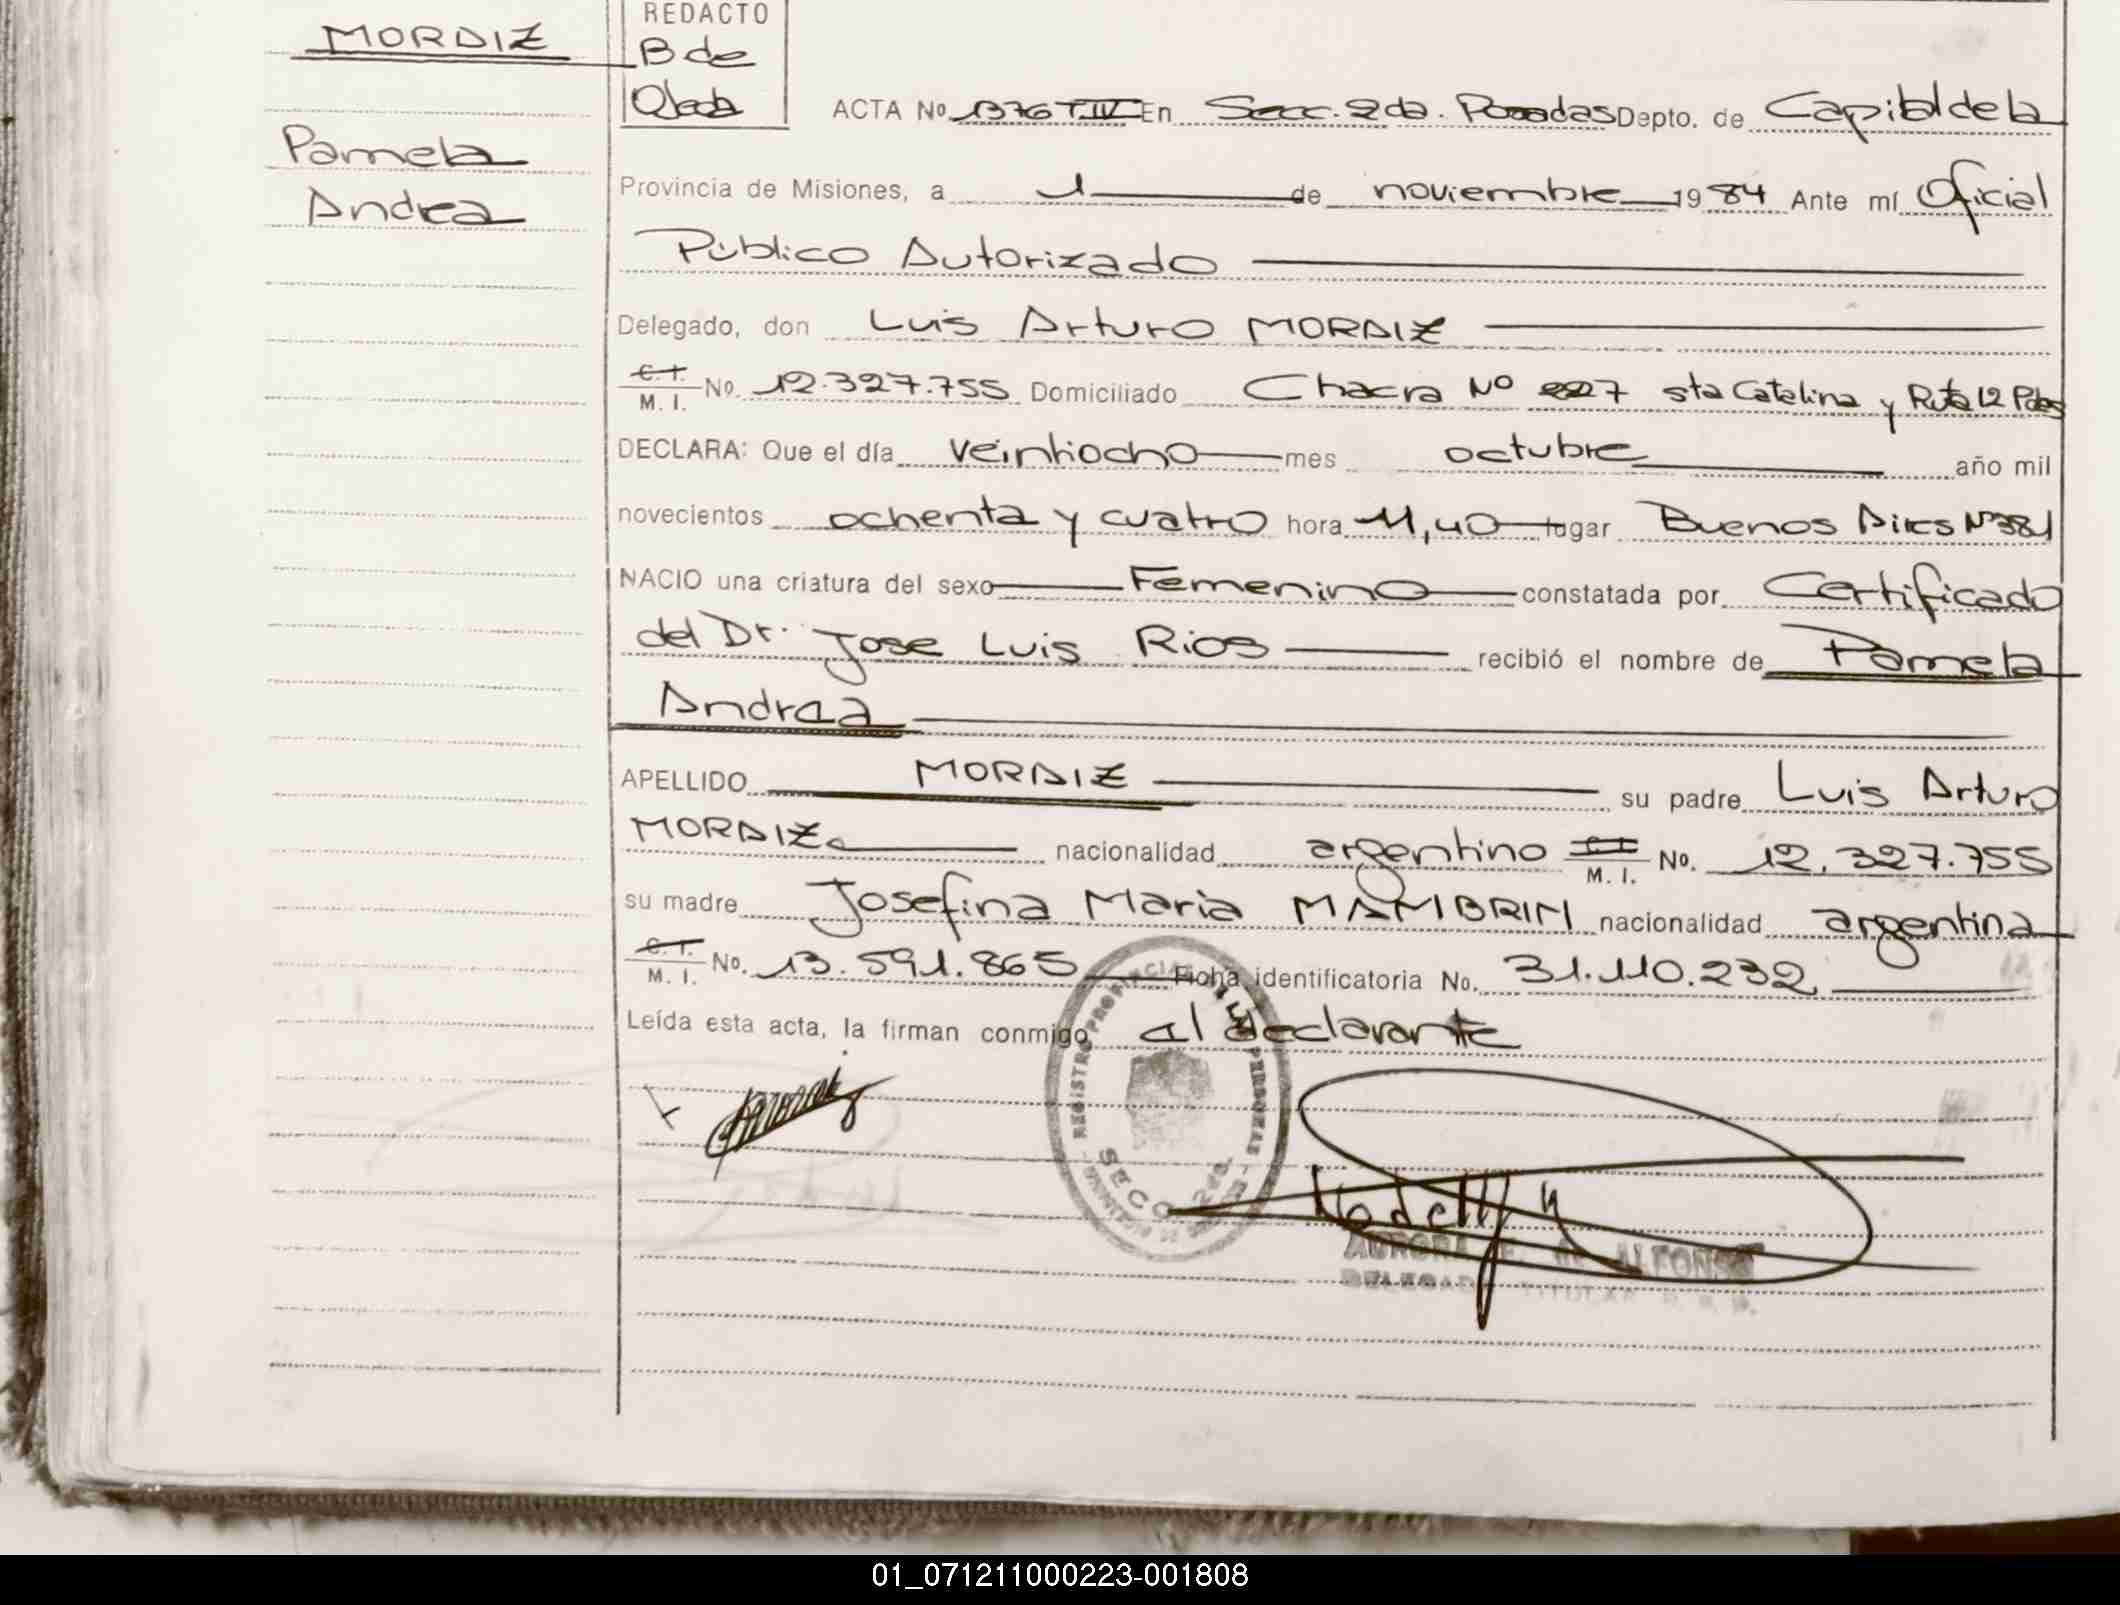 MORDIZ
Pamela
Andrea
REDACTO
B de
Ojeda
ACTA No 1376 T IV En Secc. 2da. Posadas Depto. de Capital de la
Provincia de Misiones, a 1 de noviembre 1984 Ante mí Oficial
Público Autorizado
Delegado, don Luis Arturo MORDIZ
C. I. M. I. No. 12.327.755 Domiciliado Chacra Nº 227 sta Catalina y Ruta 12 Pdas
DECLARA: Que el día veintiocho mes octubre año mil
novecientos ochenta y cuatro hora 11,40 lugar Buenos Aires Nº381
NACIO una criatura del sexo Femenino constatada por Certificado
del Dr. Jose Luis Rios recibió el nombre de Pamela
Andrea
APELLIDO MORDIZ su padre Luis Arturo
MORDIZ nacionalidad argentino C. I. M. I. No. 12.327.755
su madre Josefina Maria MAMBRIN nacionalidad argentina
C. I. M. I. No. 13.591.865 Ficha identificatoria No. 31.110.232
Leída esta acta, la firman conmigo el declarante
REGISTRO PROVINCIAL PERSONAS
AURORA F. DE ALFONSO
DELEGADA TITULAR
01_071211000223-001808